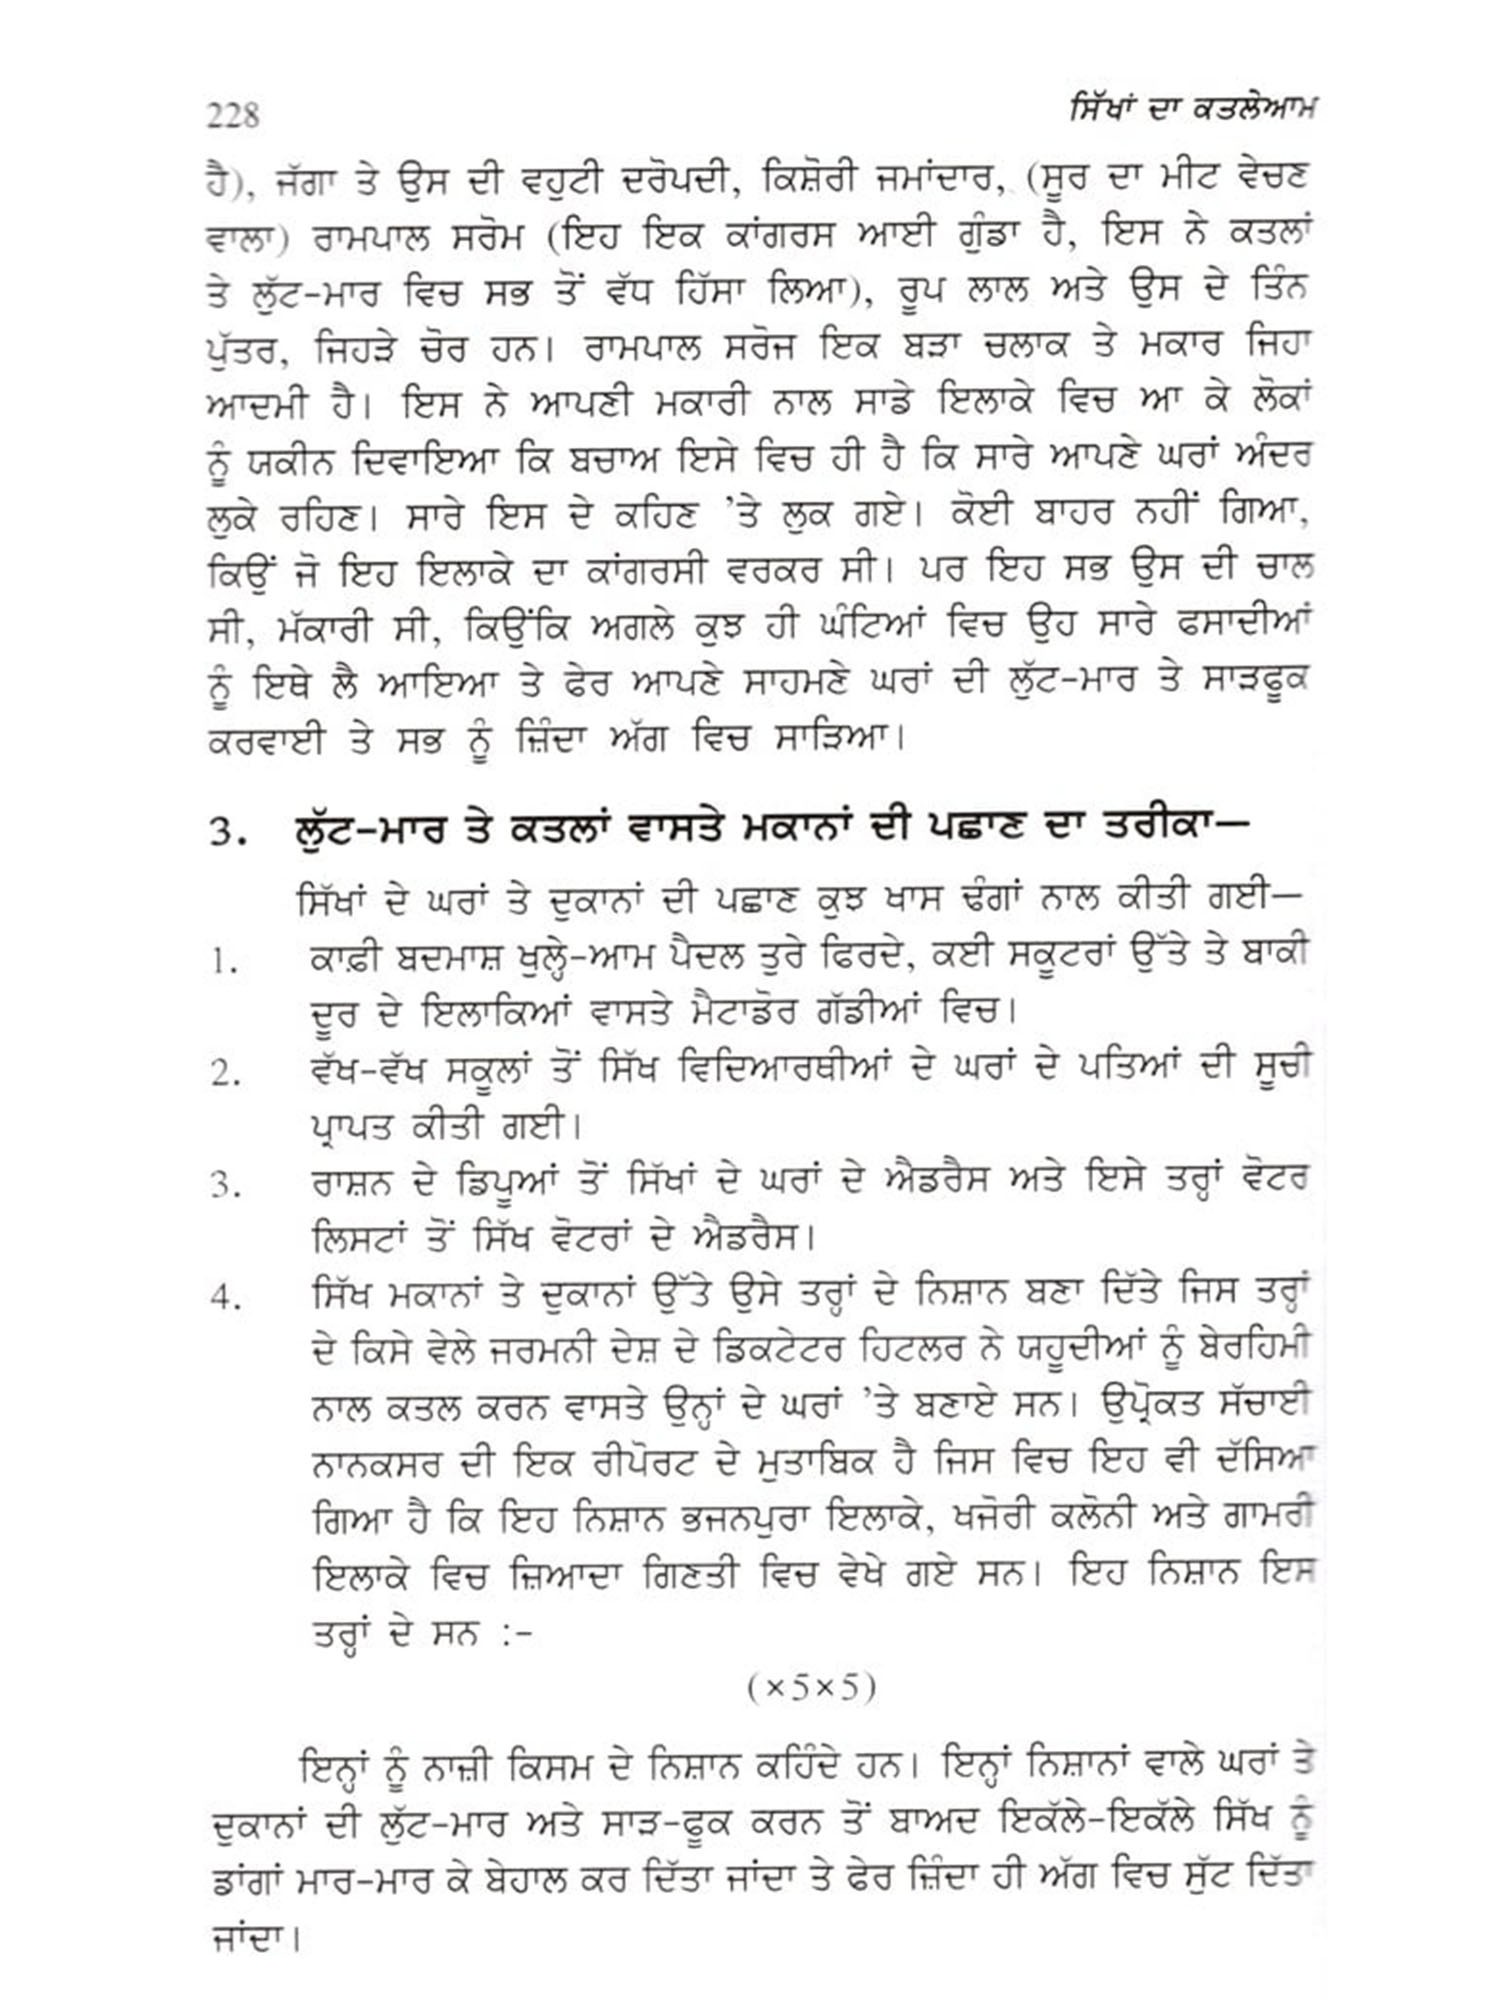 228 ਸਿੱਖਾਂ ਦਾ ਕਤਲੇਆਮ
ਹੈ), ਜੱਗਾ ਤੇ ਉਸ ਦੀ ਵਹੁਟੀ ਦਰੋਪਦੀ, ਕਿਸ਼ੋਰੀ ਜਮਾਂਦਾਰ, (ਸੂਰ ਦਾ ਮੀਟ ਵੇਚਣ
ਵਾਲਾ) ਰਾਮਪਾਲ ਸਰੋਮ (ਇਹ ਇਕ ਕਾਂਗਰਸ ਆਈ ਗੁੰਡਾ ਹੈ, ਇਸ ਨੇ ਕਤਲਾਂ
ਤੇ ਲੁੱਟ-ਮਾਰ ਵਿਚ ਸਭ ਤੋਂ ਵੱਧ ਹਿੱਸਾ ਲਿਆ), ਰੂਪ ਲਾਲ ਅਤੇ ਉਸ ਦੇ ਤਿੰਨ
ਪੁੱਤਰ, ਜਿਹੜੇ ਚੋਰ ਹਨ। ਰਾਮਪਾਲ ਸਰੋਜ ਇਕ ਬੜਾ ਚਲਾਕ ਤੇ ਮਕਾਰ ਜਿਹਾ
ਆਦਮੀ ਹੈ। ਇਸ ਨੇ ਆਪਣੀ ਮਕਾਰੀ ਨਾਲ ਸਾਡੇ ਇਲਾਕੇ ਵਿਚ ਆ ਕੇ ਲੋਕਾਂ
ਨੂੰ ਯਕੀਨ ਦਿਵਾਇਆ ਕਿ ਬਚਾਅ ਇਸੇ ਵਿਚ ਹੀ ਹੈ ਕਿ ਸਾਰੇ ਆਪਣੇ ਘਰਾਂ ਅੰਦਰ
ਲੁਕੇ ਰਹਿਣ। ਸਾਰੇ ਇਸ ਦੇ ਕਹਿਣ ’ਤੇ ਲੁਕ ਗਏ। ਕੋਈ ਬਾਹਰ ਨਹੀਂ ਗਿਆ,
ਕਿਉਂ ਜੋ ਇਹ ਇਲਾਕੇ ਦਾ ਕਾਂਗਰਸੀ ਵਰਕਰ ਸੀ। ਪਰ ਇਹ ਸਭ ਉਸ ਦੀ ਚਾਲ
ਸੀ, ਮੱਕਾਰੀ ਸੀ, ਕਿਉਂਕਿ ਅਗਲੇ ਕੁਝ ਹੀ ਘੰਟਿਆਂ ਵਿਚ ਉਹ ਸਾਰੇ ਫਸਾਦੀਆਂ
ਨੂੰ ਇਥੇ ਲੈ ਆਇਆ ਤੇ ਫੇਰ ਆਪਣੇ ਸਾਹਮਣੇ ਘਰਾਂ ਦੀ ਲੁੱਟ-ਮਾਰ ਤੇ ਸਾੜਫੂਕ
ਕਰਵਾਈ ਤੇ ਸਭ ਨੂੰ ਜ਼ਿੰਦਾ ਅੱਗ ਵਿਚ ਸਾੜਿਆ।
3. ਲੁੱਟ-ਮਾਰ ਤੇ ਕਤਲਾਂ ਵਾਸਤੇ ਮਕਾਨਾਂ ਦੀ ਪਛਾਣ ਦਾ ਤਰੀਕਾ—
ਸਿੱਖਾਂ ਦੇ ਘਰਾਂ ਤੇ ਦੁਕਾਨਾਂ ਦੀ ਪਛਾਣ ਕੁਝ ਖਾਸ ਢੰਗਾਂ ਨਾਲ ਕੀਤੀ ਗਈ—
1. ਕਾਫ਼ੀ ਬਦਮਾਸ਼ ਖੁਲ੍ਹੇ-ਆਮ ਪੈਦਲ ਤੁਰੇ ਫਿਰਦੇ, ਕਈ ਸਕੂਟਰਾਂ ਉੱਤੇ ਤੇ ਬਾਕੀ
ਦੂਰ ਦੇ ਇਲਾਕਿਆਂ ਵਾਸਤੇ ਮੈਟਾਡੋਰ ਗੱਡੀਆਂ ਵਿਚ।
2. ਵੱਖ-ਵੱਖ ਸਕੂਲਾਂ ਤੋਂ ਸਿੱਖ ਵਿਦਿਆਰਥੀਆਂ ਦੇ ਘਰਾਂ ਦੇ ਪਤਿਆਂ ਦੀ ਸੂਚੀ
ਪ੍ਰਾਪਤ ਕੀਤੀ ਗਈ।
3. ਰਾਸ਼ਨ ਦੇ ਡਿਪੂਆਂ ਤੋਂ ਸਿੱਖਾਂ ਦੇ ਘਰਾਂ ਦੇ ਐਡਰੈਸ ਅਤੇ ਇਸੇ ਤਰ੍ਹਾਂ ਵੋਟਰ
ਲਿਸਟਾਂ ਤੋਂ ਸਿੱਖ ਵੋਟਰਾਂ ਦੇ ਐਡਰੈਸ।
4. ਸਿੱਖ ਮਕਾਨਾਂ ਤੇ ਦੁਕਾਨਾਂ ਉੱਤੇ ਉਸੇ ਤਰ੍ਹਾਂ ਦੇ ਨਿਸ਼ਾਨ ਬਣਾ ਦਿੱਤੇ ਜਿਸ ਤਰ੍ਹਾਂ
ਦੇ ਕਿਸੇ ਵੇਲੇ ਜਰਮਨੀ ਦੇਸ਼ ਦੇ ਡਿਕਟੇਟਰ ਹਿਟਲਰ ਨੇ ਯਹੂਦੀਆਂ ਨੂੰ ਬੇਰਹਿਮੀ
ਨਾਲ ਕਤਲ ਕਰਨ ਵਾਸਤੇ ਉਨ੍ਹਾਂ ਦੇ ਘਰਾਂ ’ਤੇ ਬਣਾਏ ਸਨ। ਉਪ੍ਰੋਕਤ ਸੱਚਾਈ
ਨਾਨਕਸਰ ਦੀ ਇਕ ਰੀਪੋਰਟ ਦੇ ਮੁਤਾਬਿਕ ਹੈ ਜਿਸ ਵਿਚ ਇਹ ਵੀ ਦੱਸਿਆ
ਗਿਆ ਹੈ ਕਿ ਇਹ ਨਿਸ਼ਾਨ ਭਜਨਪੁਰਾ ਇਲਾਕੇ, ਖਜੋਰੀ ਕਲੋਨੀ ਅਤੇ ਗਾਮਰੀ
ਇਲਾਕੇ ਵਿਚ ਜ਼ਿਆਦਾ ਗਿਣਤੀ ਵਿਚ ਵੇਖੇ ਗਏ ਸਨ। ਇਹ ਨਿਸ਼ਾਨ ਇਸ
ਤਰ੍ਹਾਂ ਦੇ ਸਨ :-
(×5×5)
ਇਨ੍ਹਾਂ ਨੂੰ ਨਾਜ਼ੀ ਕਿਸਮ ਦੇ ਨਿਸ਼ਾਨ ਕਹਿੰਦੇ ਹਨ। ਇਨ੍ਹਾਂ ਨਿਸ਼ਾਨਾਂ ਵਾਲੇ ਘਰਾਂ ਤੇ
ਦੁਕਾਨਾਂ ਦੀ ਲੁੱਟ-ਮਾਰ ਅਤੇ ਸਾੜ-ਫੂਕ ਕਰਨ ਤੋਂ ਬਾਅਦ ਇਕੱਲੇ-ਇਕੱਲੇ ਸਿੱਖ ਨੂੰ
ਡਾਂਗਾਂ ਮਾਰ-ਮਾਰ ਕੇ ਬੇਹਾਲ ਕਰ ਦਿੱਤਾ ਜਾਂਦਾ ਤੇ ਫੇਰ ਜ਼ਿੰਦਾ ਹੀ ਅੱਗ ਵਿਚ ਸੁੱਟ ਦਿੱਤਾ
ਜਾਂਦਾ।